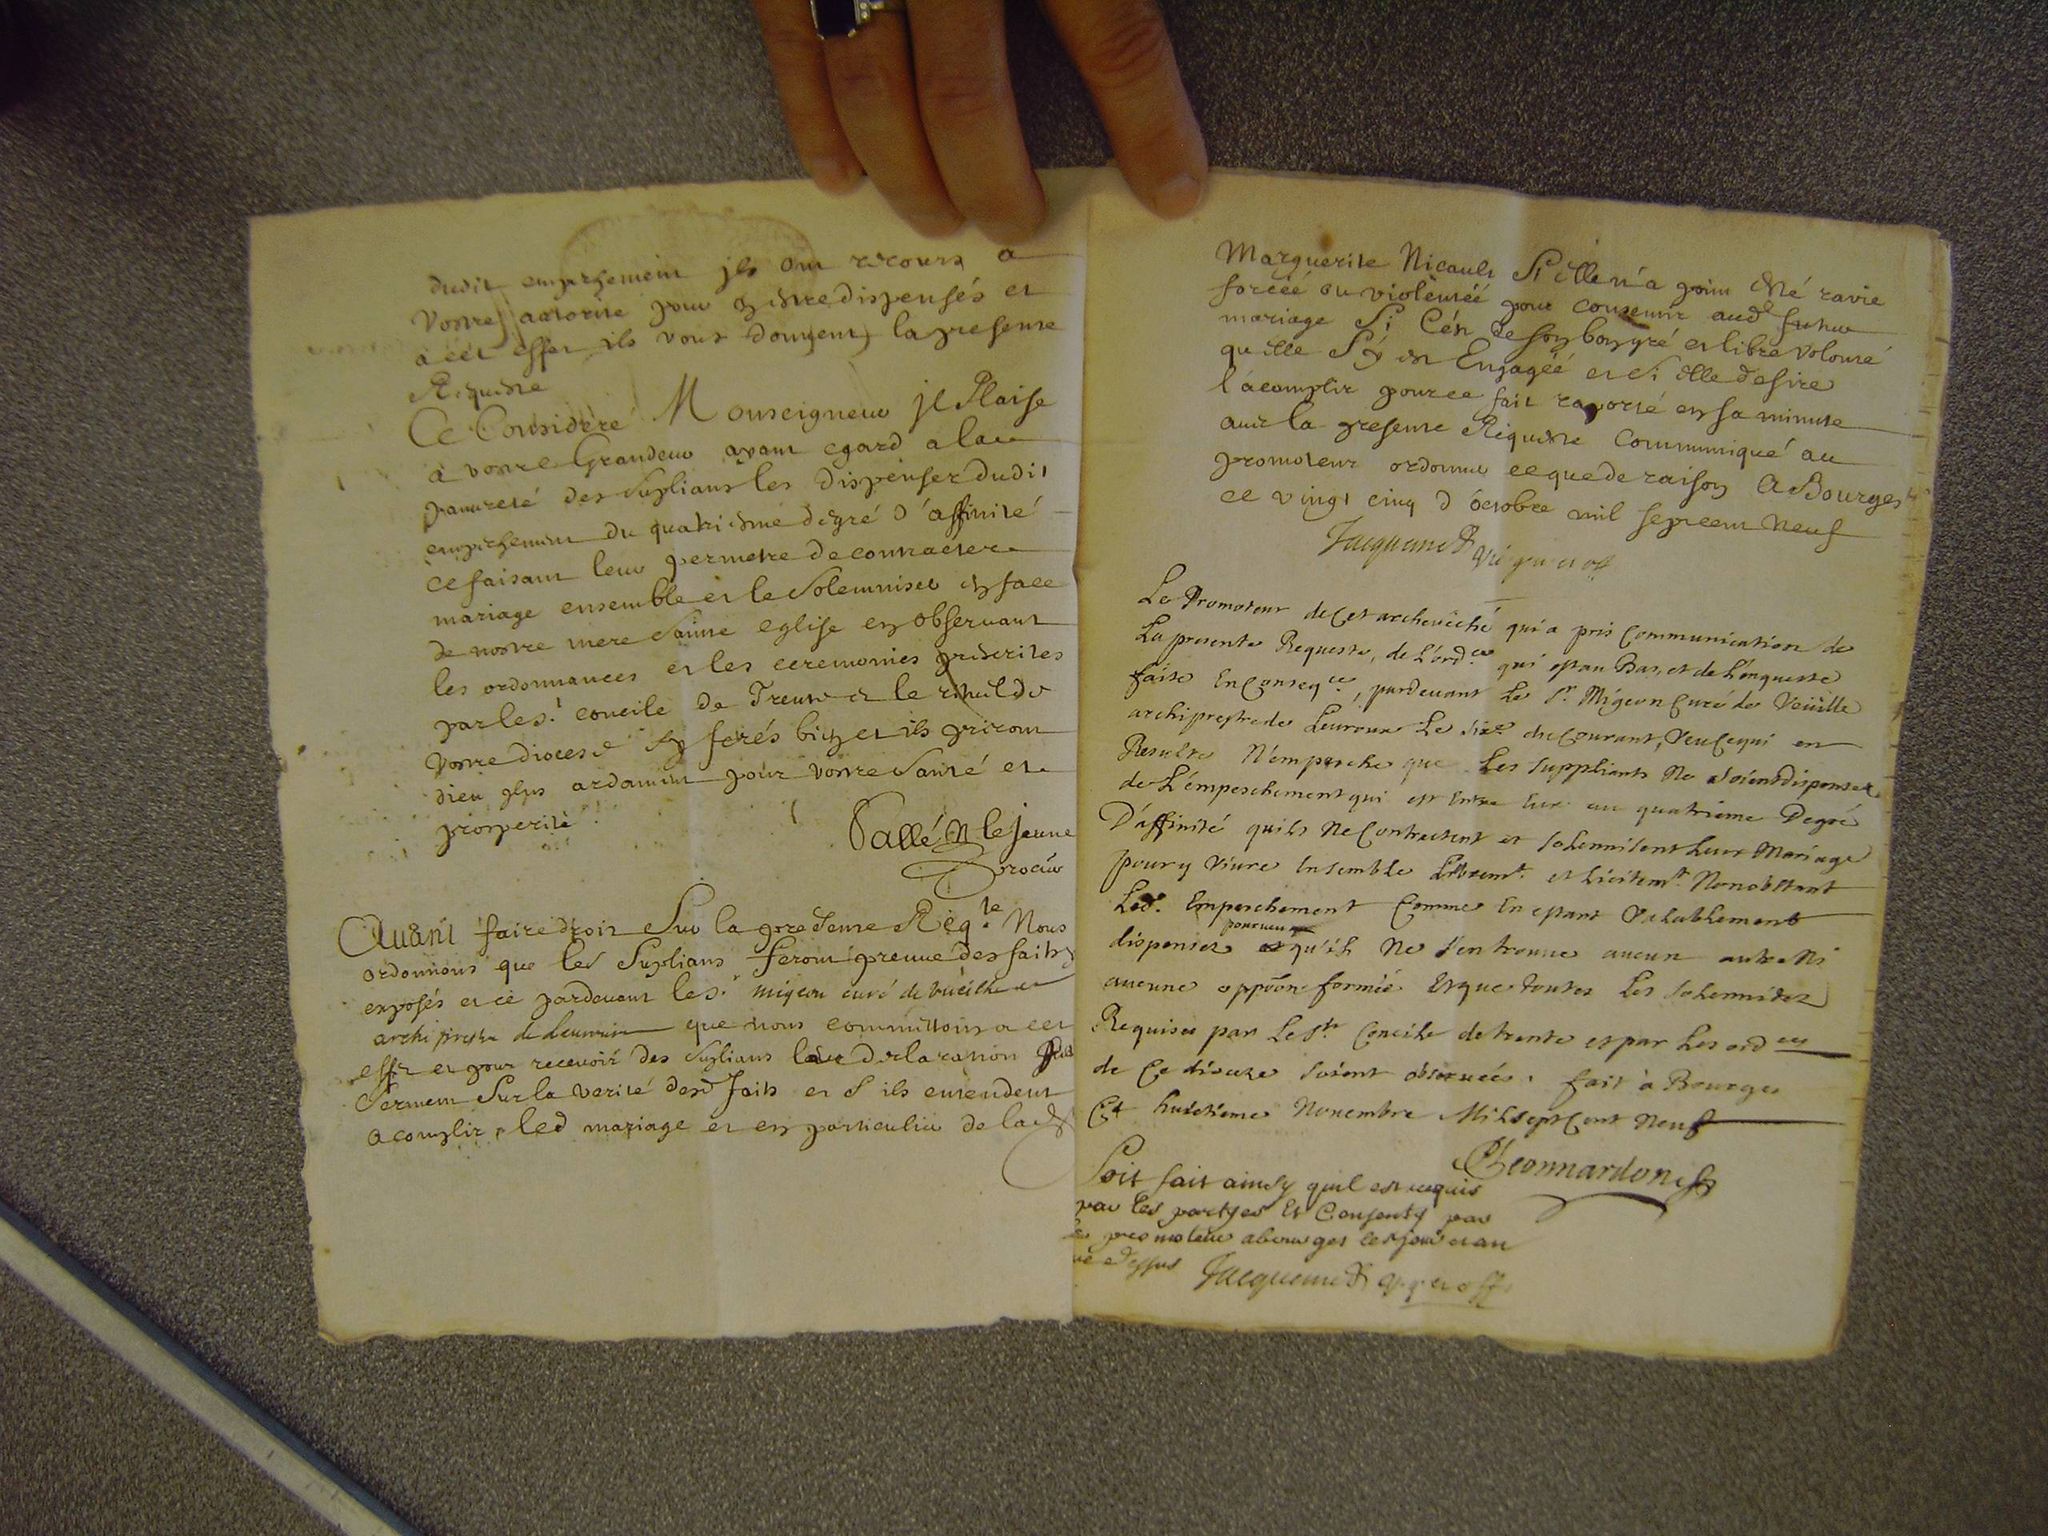 dudit empeschement ils ont recours a
Vostre autorité pour en estre dispensés et
a cet effet ils vous donnent la presente
Requeste
Ce Consideré Monseigneur il Plaise
a vostre Grandeur ayant egard a la
pauureté des Suplians les dispenser dudit
empeschement du quatriesme degré d'affinité
ce faisant leur permetre de contracter
mariage ensemble et le Solemniser en face
de nostre mere Sainte eglise en obseruant
les ordonnances et les ceremonies prescrites
par le st concile de Trente et le rituel de
vostre diocese Sy ferés bien et ils priront
dieu plus ardament pour vostre santé et
prosperité
Vallé le jeune
procur
Auant faire droit Sur la presente Reqte Nous
ordonnons que les Suplians feront preuue des faits
exposés et ce pardeuant le sr migeon curé de vüeille
archiprestre de leuroux que nous committons a cet
effet et pour receuoir des Suplians leur declaration
Serment Sur la verité desd faits et S'ils entendent
acomplir led mariage et en particulier de lad
Marguerite Nicault Si elle n'a point esté ravie
forcéé ou violentéé pour consentir aud futur
mariage Si C'est de son bon gré et libre volonté
qu'elle S'y est Engagéé et Si elle desire
l'acomplir pour ce fait raporté en sa minute
auec la presente Requeste Communiqué au
promoteur ordonner ce que de raison A Bourges
ce vingt cinq d'octobre mil sept cent Neuf
Jacquemet vic gn et off
Le Promoteur de Cet archeuêché qui a pris Communication de
La presente Requeste, de L'ordce qui est au Bas, et de L'enqueste
faite En Conseqce, pardeuant Le Sr Migeon Curé de Veüille
archiprestre de Leuroux Le Sixe du Courant, Veu Ce qui en
Resulte N'empesche que Les Suppliants Ne Soient dispensez
de L'empeschement qui est Entre Eux au quatrieme Degré
D'affinité quils Ne Contractent et Solemnisent Leur Mariage
pour y Viure Ensemble Libremt et Licitemt Nonobstant
Led. Empeschement Comme En estant Valablement
pourueu
dispensez qu'il Ne S'en trouue aucun autre Ni
aucune oppõn forméé Et que toutes Les Solemnitez
Requises par Le St Concile de trente et par Les ordces
de Ce dioceze Soient obseruéés. fait à Bourges
Ce huictieme Nouembre Mil Sept Cent Neuf
Leonnardon
Soit fait ainsy quil est requis
par les partyes Et Consenty par
le promoteur a bourges les jour et an
que dessus Jacquemet v. g. et off